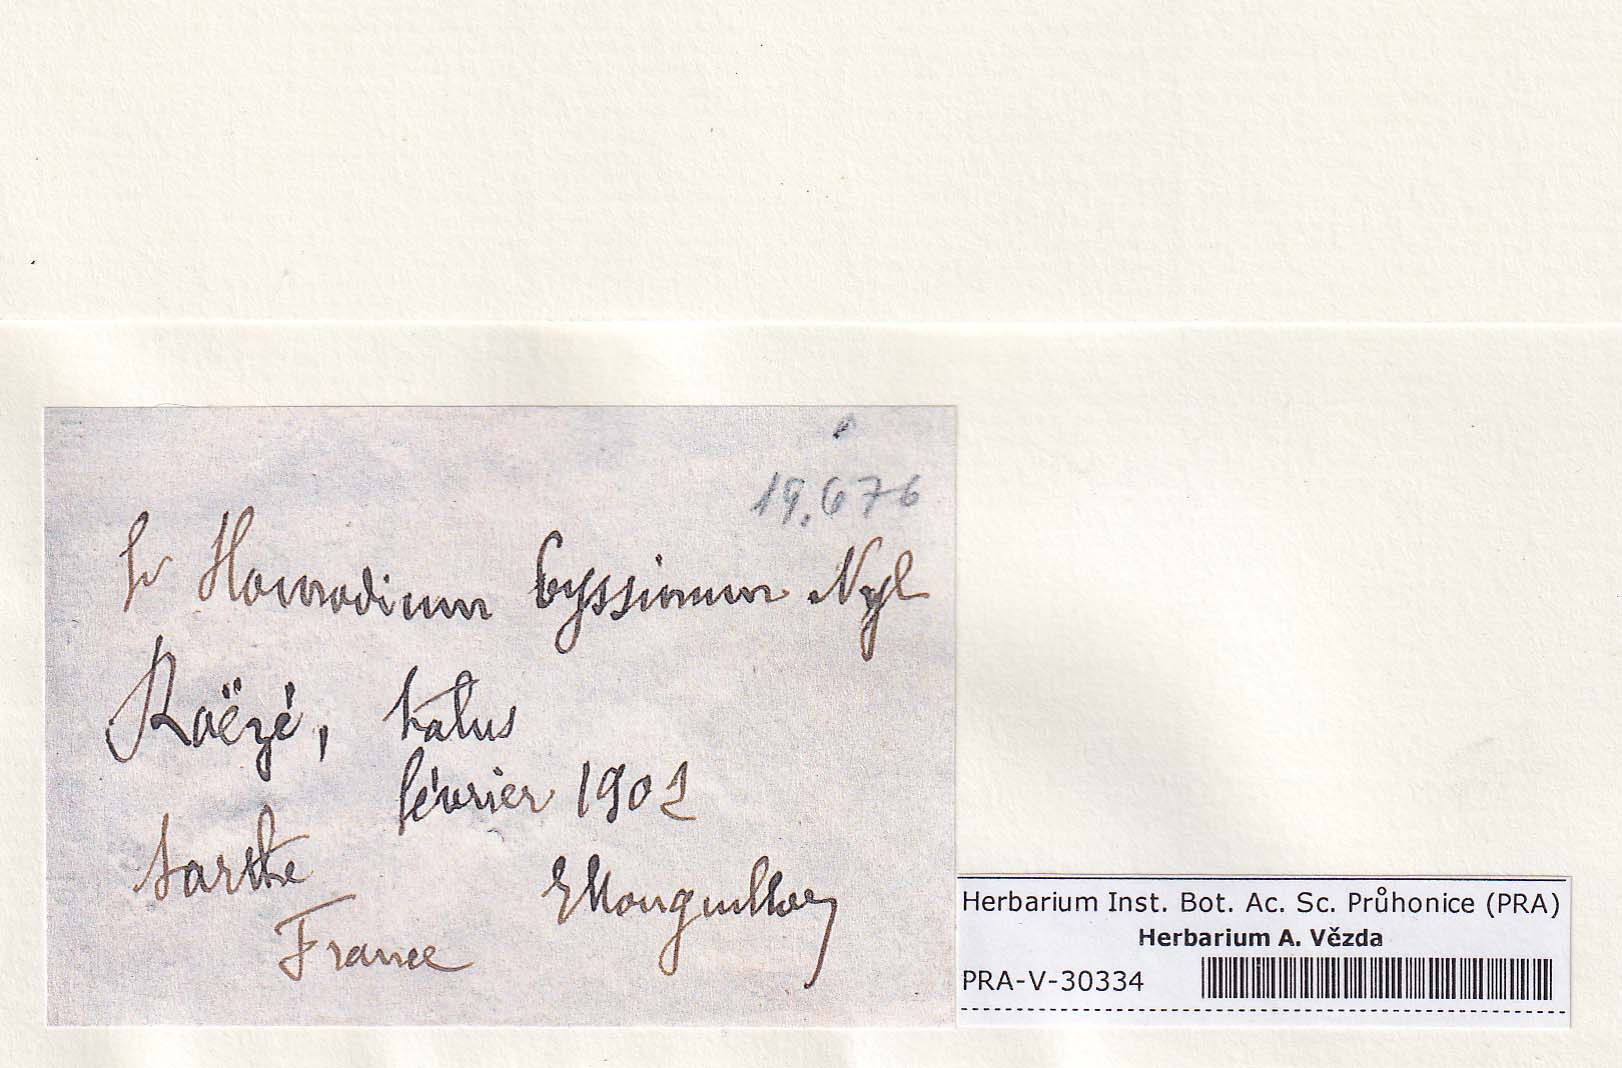 19.676
Homodium byssinum Nyl
Roëzé, talus
février 1902
Sarthe
EMonguillon
France
Herbarium Inst. Bot. Ac. Sc. Průhonice (PRA)
Herbarium A. Vězda
PRA-V-30334